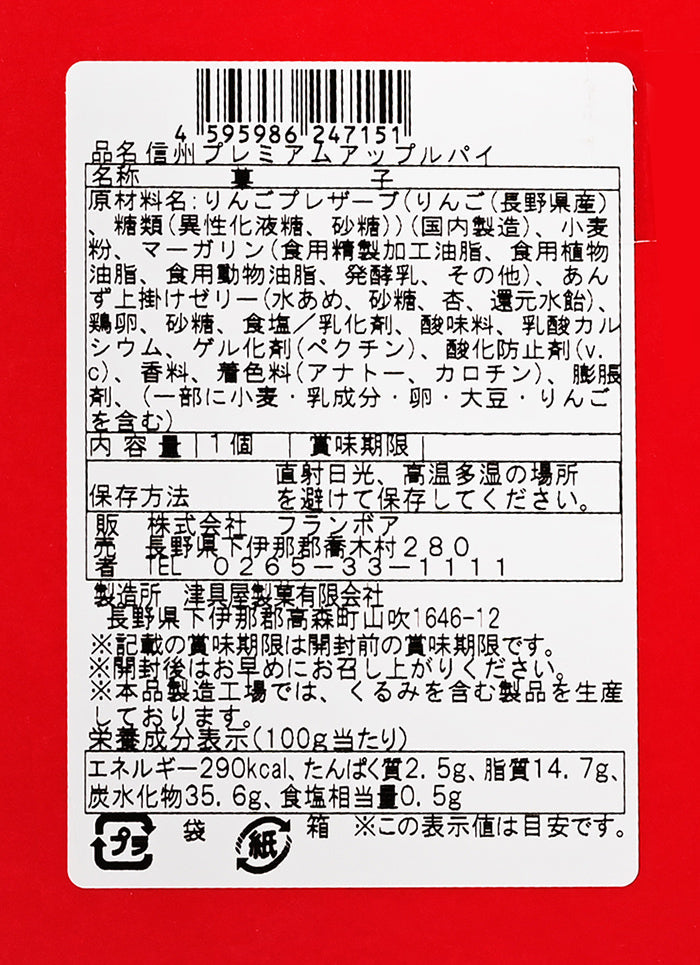 4 595986 247151
品名 信州プレミアムアップルパイ
名称 菓子
原材料名:りんごプレザーブ(りんご(長野県産)
、糖類(異性化液糖、砂糖))(国内製造)、小麦
粉、マーガリン(食用精製加工油脂、食用植物
油脂、食用動物油脂、発酵乳、その他)、あん
ず上掛けゼリー(水あめ、砂糖、杏、還元水飴)、
鶏卵、砂糖、食塩/乳化剤、酸味料、乳酸カル
シウム、ゲル化剤(ペクチン)、酸化防止剤(v.
c)、香料、着色料(アナトー、カロチン)、膨脹
剤、(一部に小麦・乳成分・卵・大豆・りんご
を含む)
内容量 1個 賞味期限
直射日光、高温多湿の場所
保存方法 を避けて保存してください。
販 株式会社 フランボア
売 長野県下伊那郡喬木村280
者 TEL 0265-33-1111
製造所 津具屋製菓有限会社
長野県下伊那郡高森町山吹1646-12
※記載の賞味期限は開封前の賞味期限です。
※開封後はお早めにお召し上がりください。
※本品製造工場では、くるみを含む製品を生産
しております。
栄養成分表示(100g当たり)
エネルギー290kcal、たんぱく質2.5g、脂質14.7g、
炭水化物35.6g、食塩相当量0.5g
プラ 袋 紙 箱 ※この表示値は目安です。